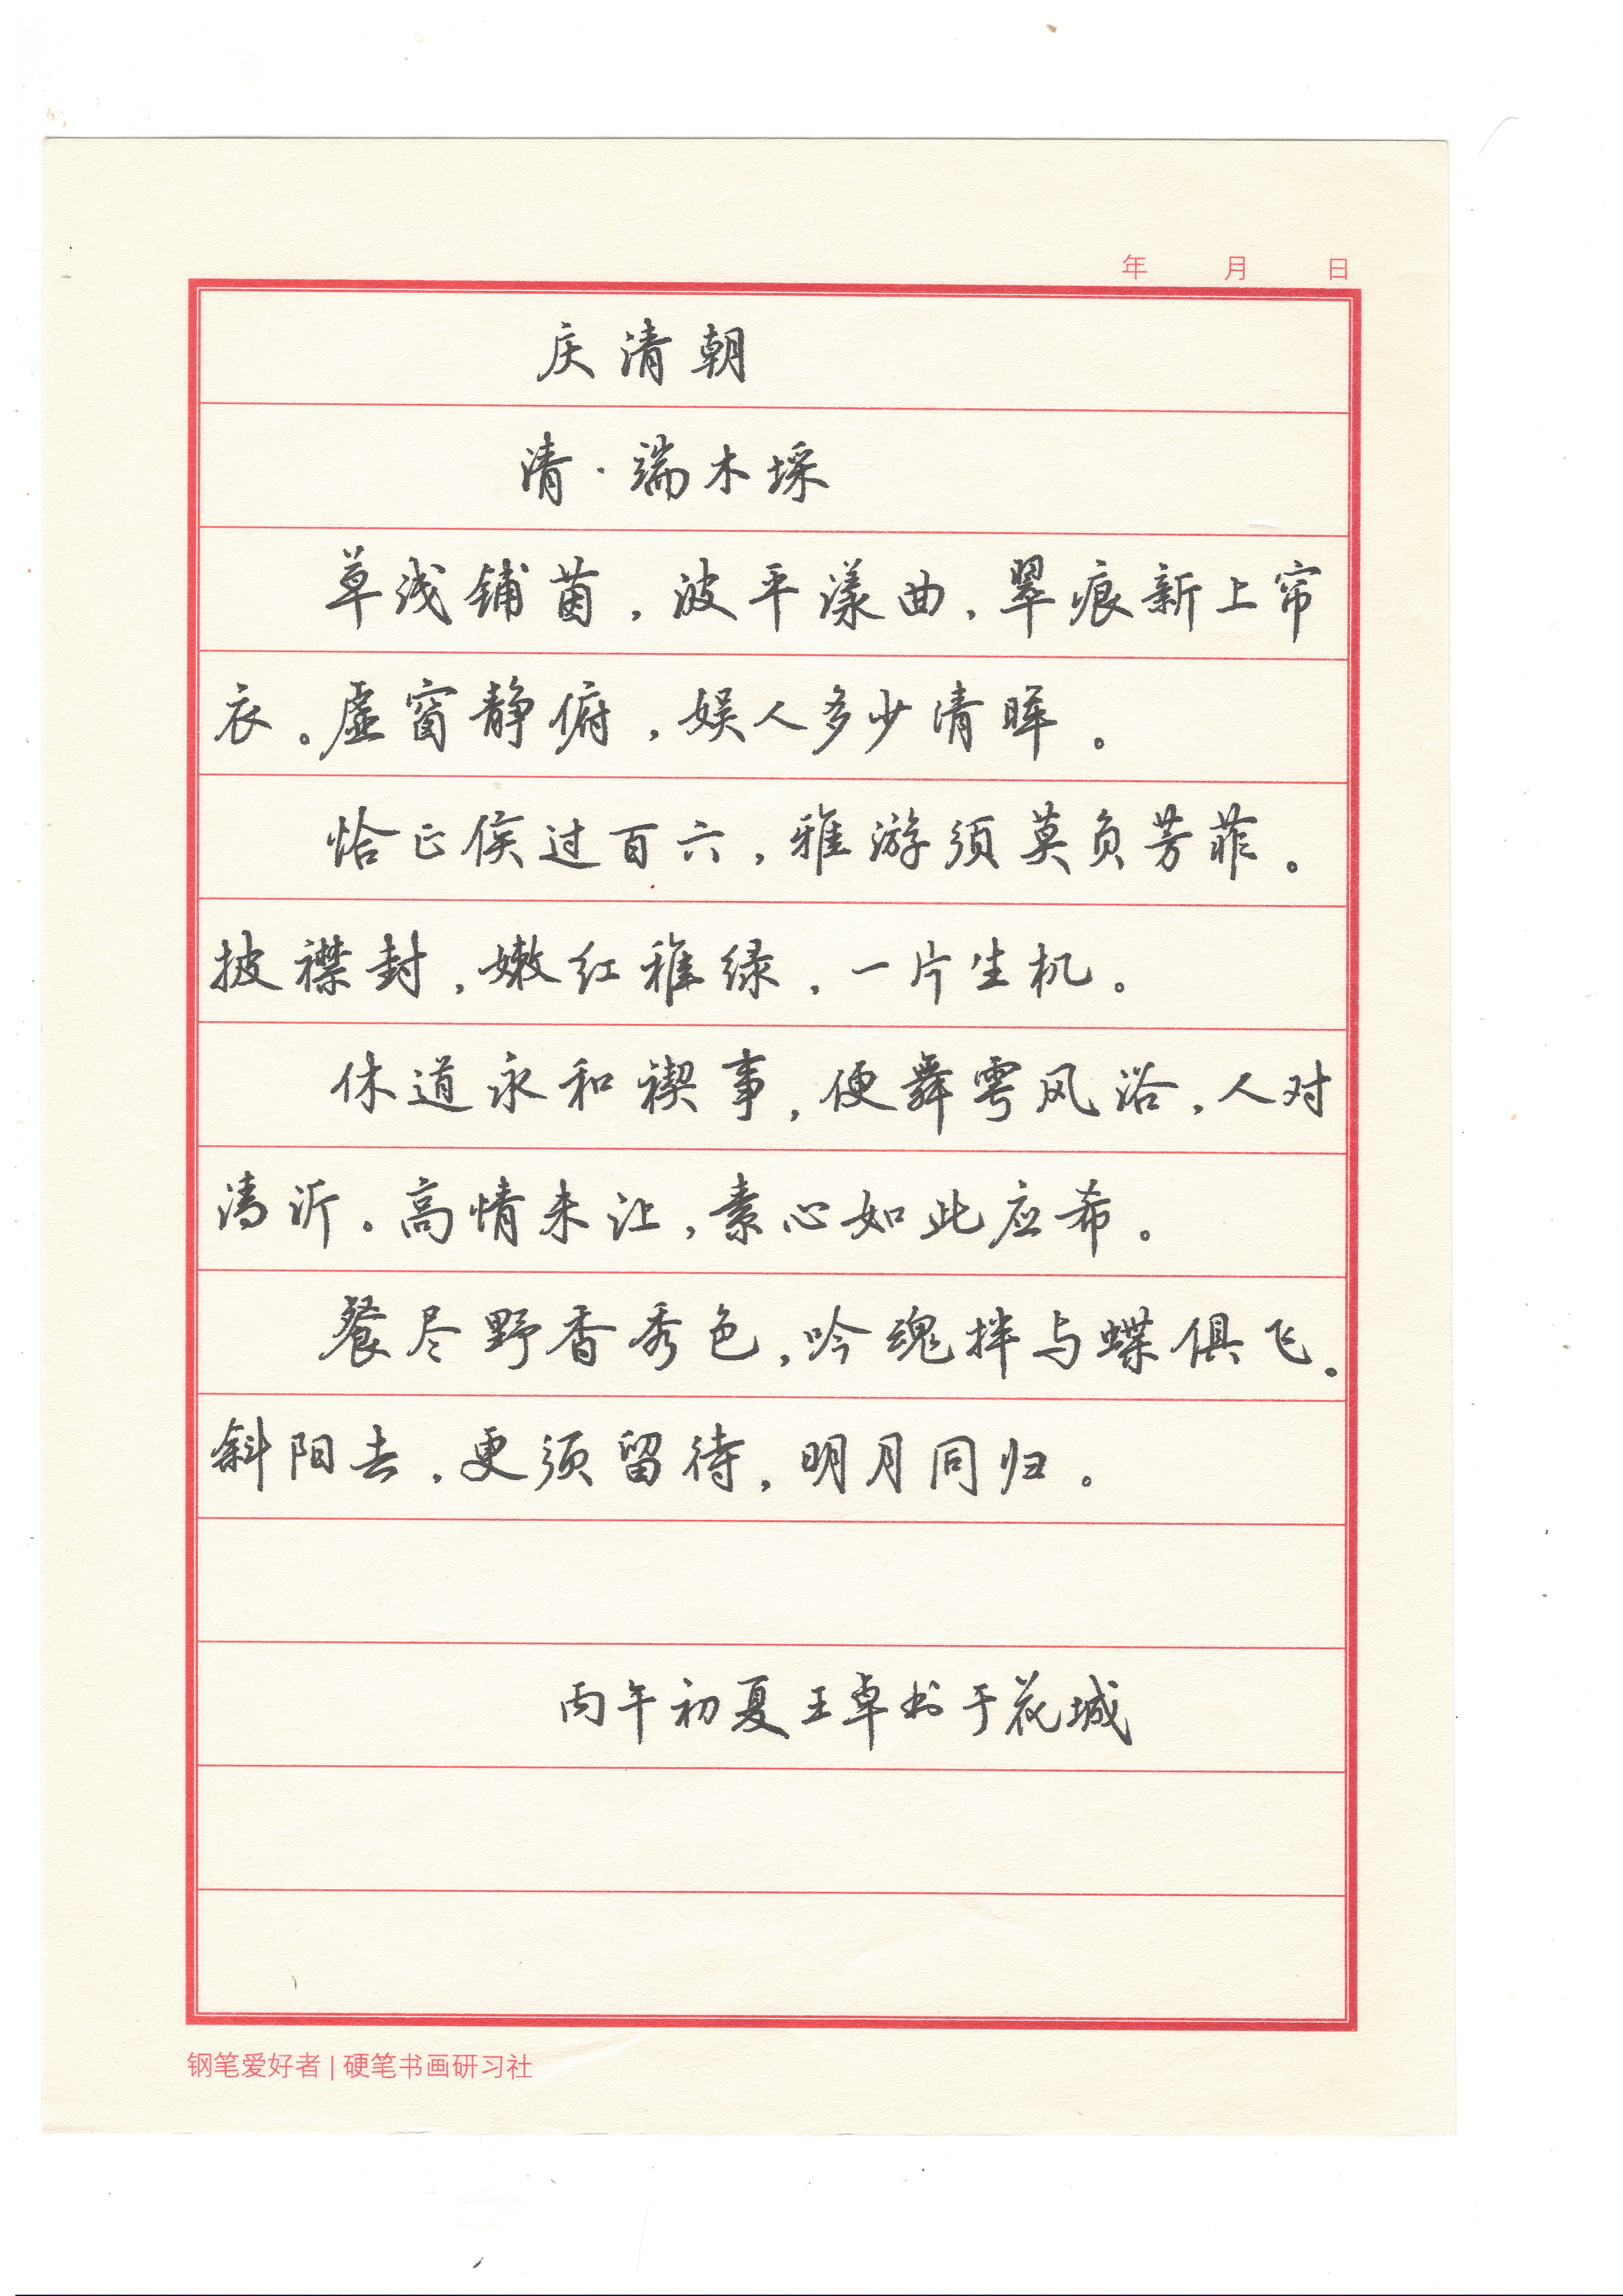 年 月 日
庆清朝
清·端木埰
草浅铺茵，波平漾曲，翠痕新上帘
衣。虚窗静俯，娱人多少清晖。
恰正候过百六，雅游须莫负芳菲。
披襟封，嫩红稚绿，一片生机。
休道永和禊事，便舞雩风浴，人对
清沂。高情未让，素心如此应希。
餐尽野香秀色，吟魂拌与蝶俱飞。
斜阳去，更须留待，明月同归。
丙午初夏王卓书于花城
钢笔爱好者 | 硬笔书画研习社